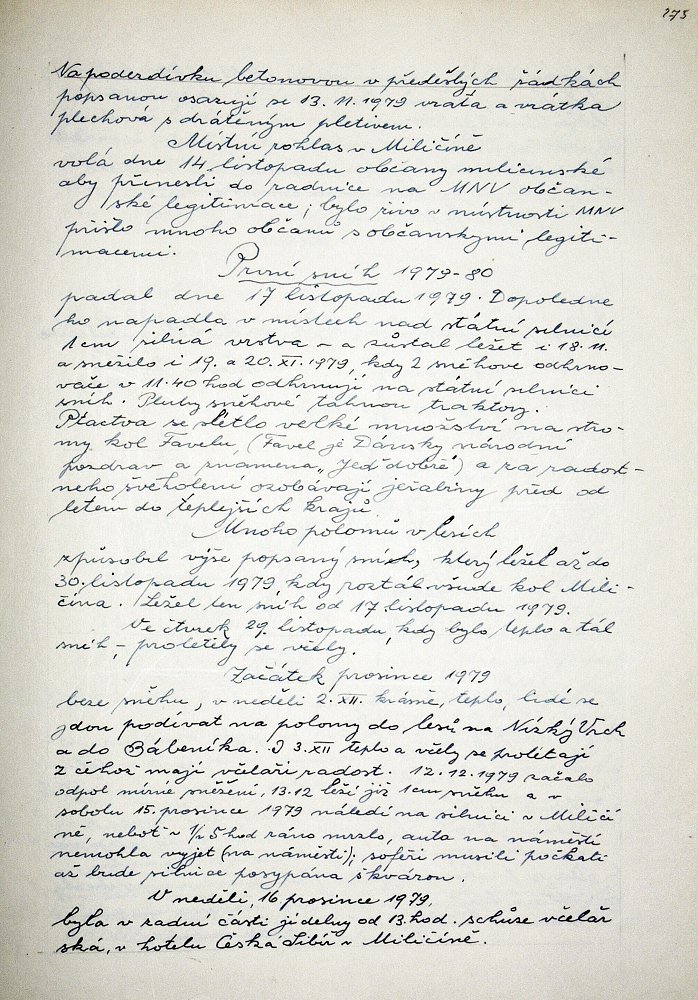 273
Na podezdívku betonovou v předešlých řádkách
popsanou osazují se 13. 11. 1979 vrata a vrátka
plechová s drátěným pletivem.
Místní rohlas v Miličíně
volá dne 14 listopadu občany miličínské
aby přinesli do radnice na MNV občan-
ské legitimace; bylo živo v místnosti MNV
přišlo mnoho občanů s občanskymi legiti-
macemi.
První sníh 1979-80
padal dne 17 listopadu 1979. Dopoledne
ho napadla v místech nad státní silnicí
1 cm silná vrstva - a zůstal ležet i 18. 11.
a sněžilo i 19. a 20. XI. 1979, kdy 2 sněhove odhrno-
vače v 11.40 hod odhrnují na státní silnici
sníh. Pluhy sněhové táhnou traktory.
Ptactva se slétlo velké množství na stro-
my kol Favelu, (Favel je Dánsky národní
pozdrav a znamena „Jeď dobře") a za radost-
neho švěholení ozobávají jeřabiny před od
letem do teplejších krajů.
Mnoho polomů v lesích
způsobil výše popsaný sníh, který ležel až do
30. listopadu 1979, kdy roztál všude kol Mili-
čína. Ležel ten sníh od 17 listopadu 1979.
Ve čtvrtek 29. listopadu, kdy bylo teplo a tál
sníh -, proletěly se včely.
Začátek prosince 1979
beze sněhu, v neděli 2. XII. krásně, teplo, lidé se
jdou podívat na polomy do lesů na Nízký Vrch
a do Bábeníka. I 3. XII teplo a včely se prolétají
z čehož mají včelaři radost. 12. 12. 1979 začalo
odpol mírné sněžení, 13. 12 leží již 1 cm sněhu a v
sobotu 15. prosince 1979 náledí na silnici v Miličí
ně, neboť v 1/2 5 hod ráno mrzlo, auta na náměstí
nemohla vyjet (na náměstí); soféři musili počkati
až bude silnice posypána škvárou.
V neděli, 16. prosince 1979,
byla v zadní části jídelny od 13. hod. schůze včelař
ská, v hotelu Česká Sibiř v Miličíně.